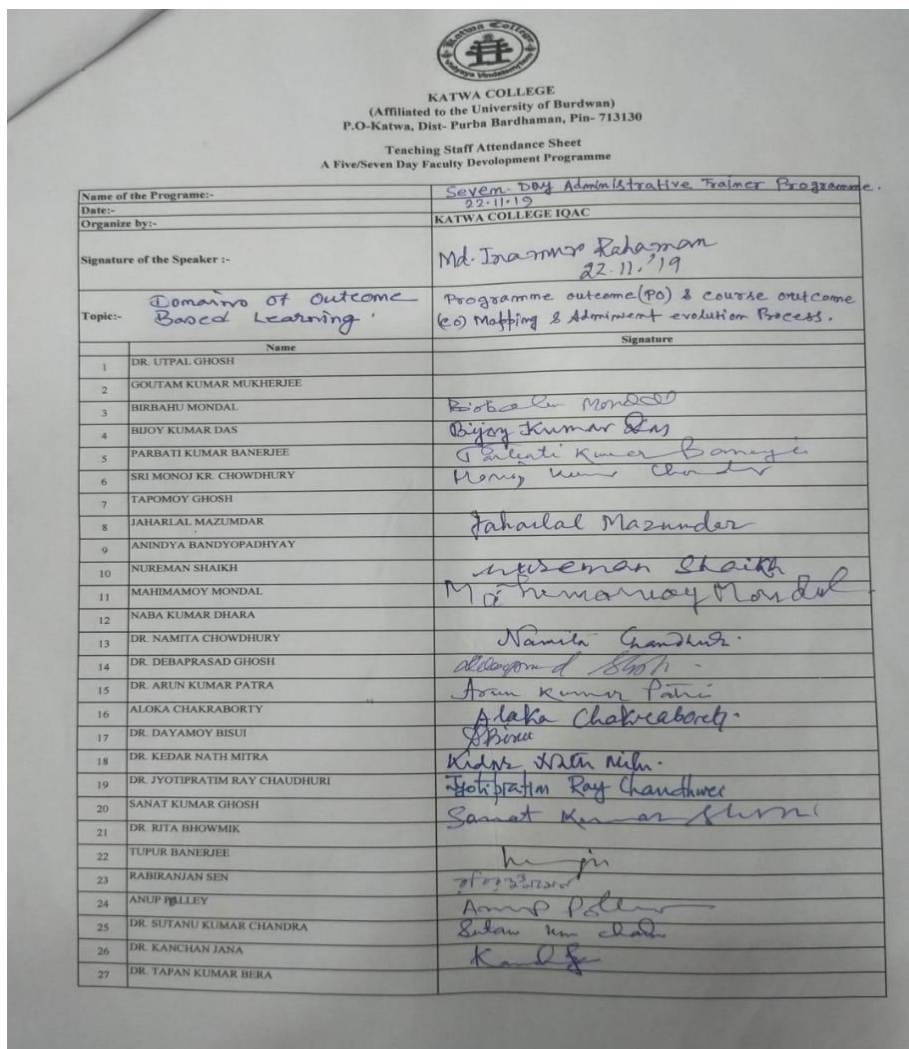 Katwa College
Vidyaya Vindateamritam
KATWA COLLEGE
(Affiliated to the University of Burdwan)
P.O-Katwa, Dist- Purba Bardhaman, Pin- 713130
Teaching Staff Attendance Sheet
A Five/Seven Day Faculty Devolopment Programme
Name of the Programe:- Sevem-Day Administrative Trainer Programme.
Date:- 22.11.19
Organize by:- KATWA COLLEGE IQAC
Signature of the Speaker :- Md. Inamur Rahaman
22.11.'19
Topic:- Domains of Outcome Based Learning. Programme outcome(PO) & course outcome
(CO) Mapping & evolution Process.
Name Signature
1 DR. UTPAL GHOSH
2 GOUTAM KUMAR MUKHERJEE
3 BIRBAHU MONDAL Birbahu Mondal
4 BIJOY KUMAR DAS Bijoy Kumar Das
5 PARBATI KUMAR BANERJEE Parbati Kumar Banerjee
6 SRI MONOJ KR. CHOWDHURY Monoj Kumar
7 TAPOMOY GHOSH
8 JAHARLAL MAZUMDAR Jaharlal Mazumder
9 ANINDYA BANDYOPADHYAY
10 NUREMAN SHAIKH Nureman Shaikh
11 MAHIMAMOY MONDAL Mahimamoy Mondal
12 NABA KUMAR DHARA
13 DR. NAMITA CHOWDHURY Namita
14 DR. DEBAPRASAD GHOSH
15 DR. ARUN KUMAR PATRA Arun Kumar Patra
16 ALOKA CHAKRABORTY Alaka Chakraborty.
17 DR. DAYAMOY BISUI DBisui
18 DR. KEDAR NATH MITRA
19 DR. JYOTIPRATIM RAY CHAUDHURI Jyotipratim Ray Chaudhuri
20 SANAT KUMAR GHOSH Sanat Kumar Ghosh
21 DR. RITA BHOWMIK
22 TUPUR BANERJEE
23 RABIRANJAN SEN
24 ANUP PALLEY Anup Palley
25 DR. SUTANU KUMAR CHANDRA Sutanu Kum Chandra
26 DR. KANCHAN JANA
27 DR. TAPAN KUMAR BERA